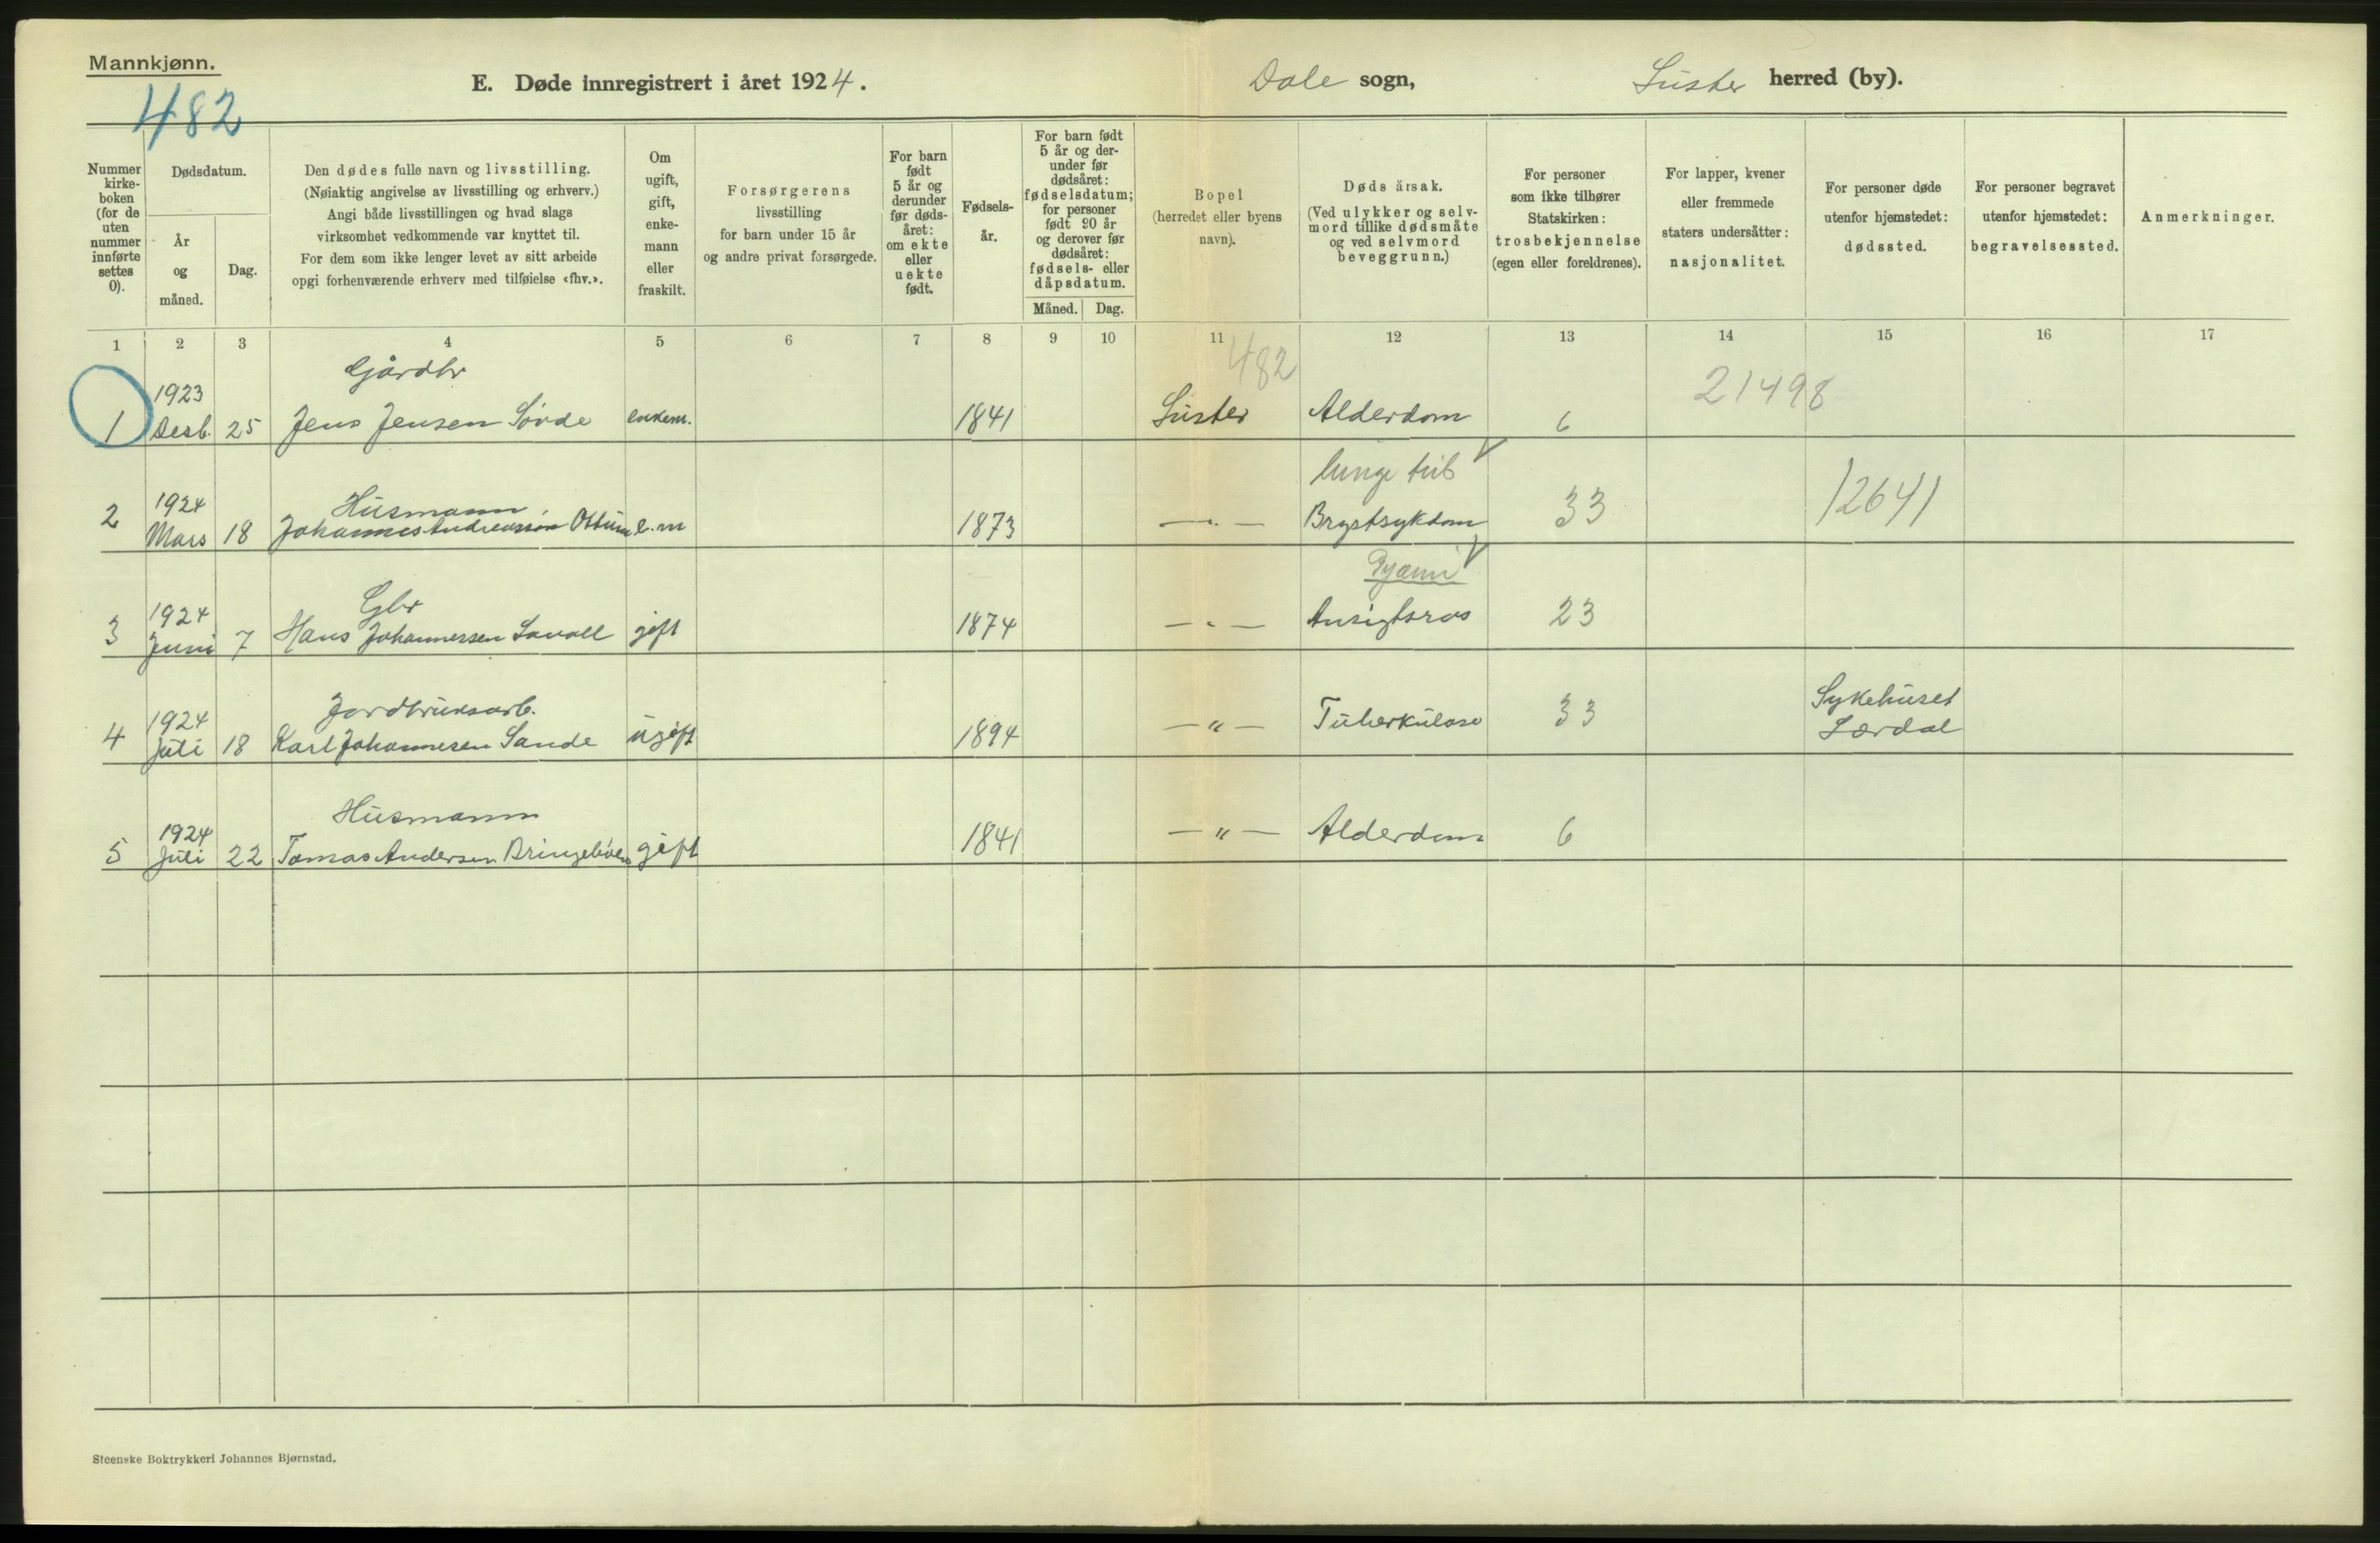 Mannkjønn.
482
E. Døde innregistrert i året 1924.
Dale sogn,
Luster herred (by).
Nummer
kirke-
boken
(for de
uten
nummer
innførte
settes
0).
Dødsdatum.
År
og
måned.
Dag.
Den dødes fulle navn og livsstilling.
(Nøiaktig angivelse av livsstilling og erhverv.)
Angi både livsstillingen og hvad slags
virksomhet vedkommende var knyttet til.
For dem som ikke lenger levet av sitt arbeide
opgi forhenværende erhverv med tilføielse «fhv.».
Om
ugift,
gift,
enke-
mann
eller
fraskilt.
Forsørgerens
livsstilling
for barn under 15 år
og andre privat forsørgede.
For barn
født
5 år og
derunder
før døds-
året:
om ekte
eller
uekte
født.
Fødsels-
år.
For barn født
5 år og der-
under før
dødsåret:
fødselsdatum;
for personer
født 90 år
og derover før
dødsåret:
fødsels- eller
dåpsdatum.
Måned. Dag.
Bopel
(herredet eller byens
navn).
Dødsårsak.
(Ved ulykker og selv-
mord tillike dødsmåte
og ved selvmord
beveggrunn.)
For personer
som ikke tilhører
Statskirken:
trosbekjennelse
(egen eller foreldrenes).
For lapper, kvener
eller fremmede
staters undersåtter:
nasjonalitet.
For personer døde
utenfor hjemstedet:
dødssted.
For personer begravet
utenfor hjemstedet:
begravelsessted.
Anmerkninger.
1 2 3 4 5 6 7 8 9 10 11 12 13 14 15 16 17
482
Gårdbr
1923
21498
1 Desb. 25 Jens Jensen Søvde enkem. 1841 Luster Alderdom 6
lunge tub
1924 Husmann
2 Mars 18 Johannes Andreassøn Ottum e.m 1873 — " — Brystsykdom 33 12641
Pyæmi
1924 Gbr
3 Juni 7 Hans Johannessen gift 1874 — " — Ansigtsros 23
1924 Jordbruksarb.
Sykehuset
4 Juli 18 Karl Johannesen Sande ugift 1894 — " — Tuberkulose 33 Lærdal
1924 Husmann
5 Juli 22 Tomas Andersen gift 1841 — " — Alderdom 6
Steenske Boktrykkeri Johannes Bjørnstad.